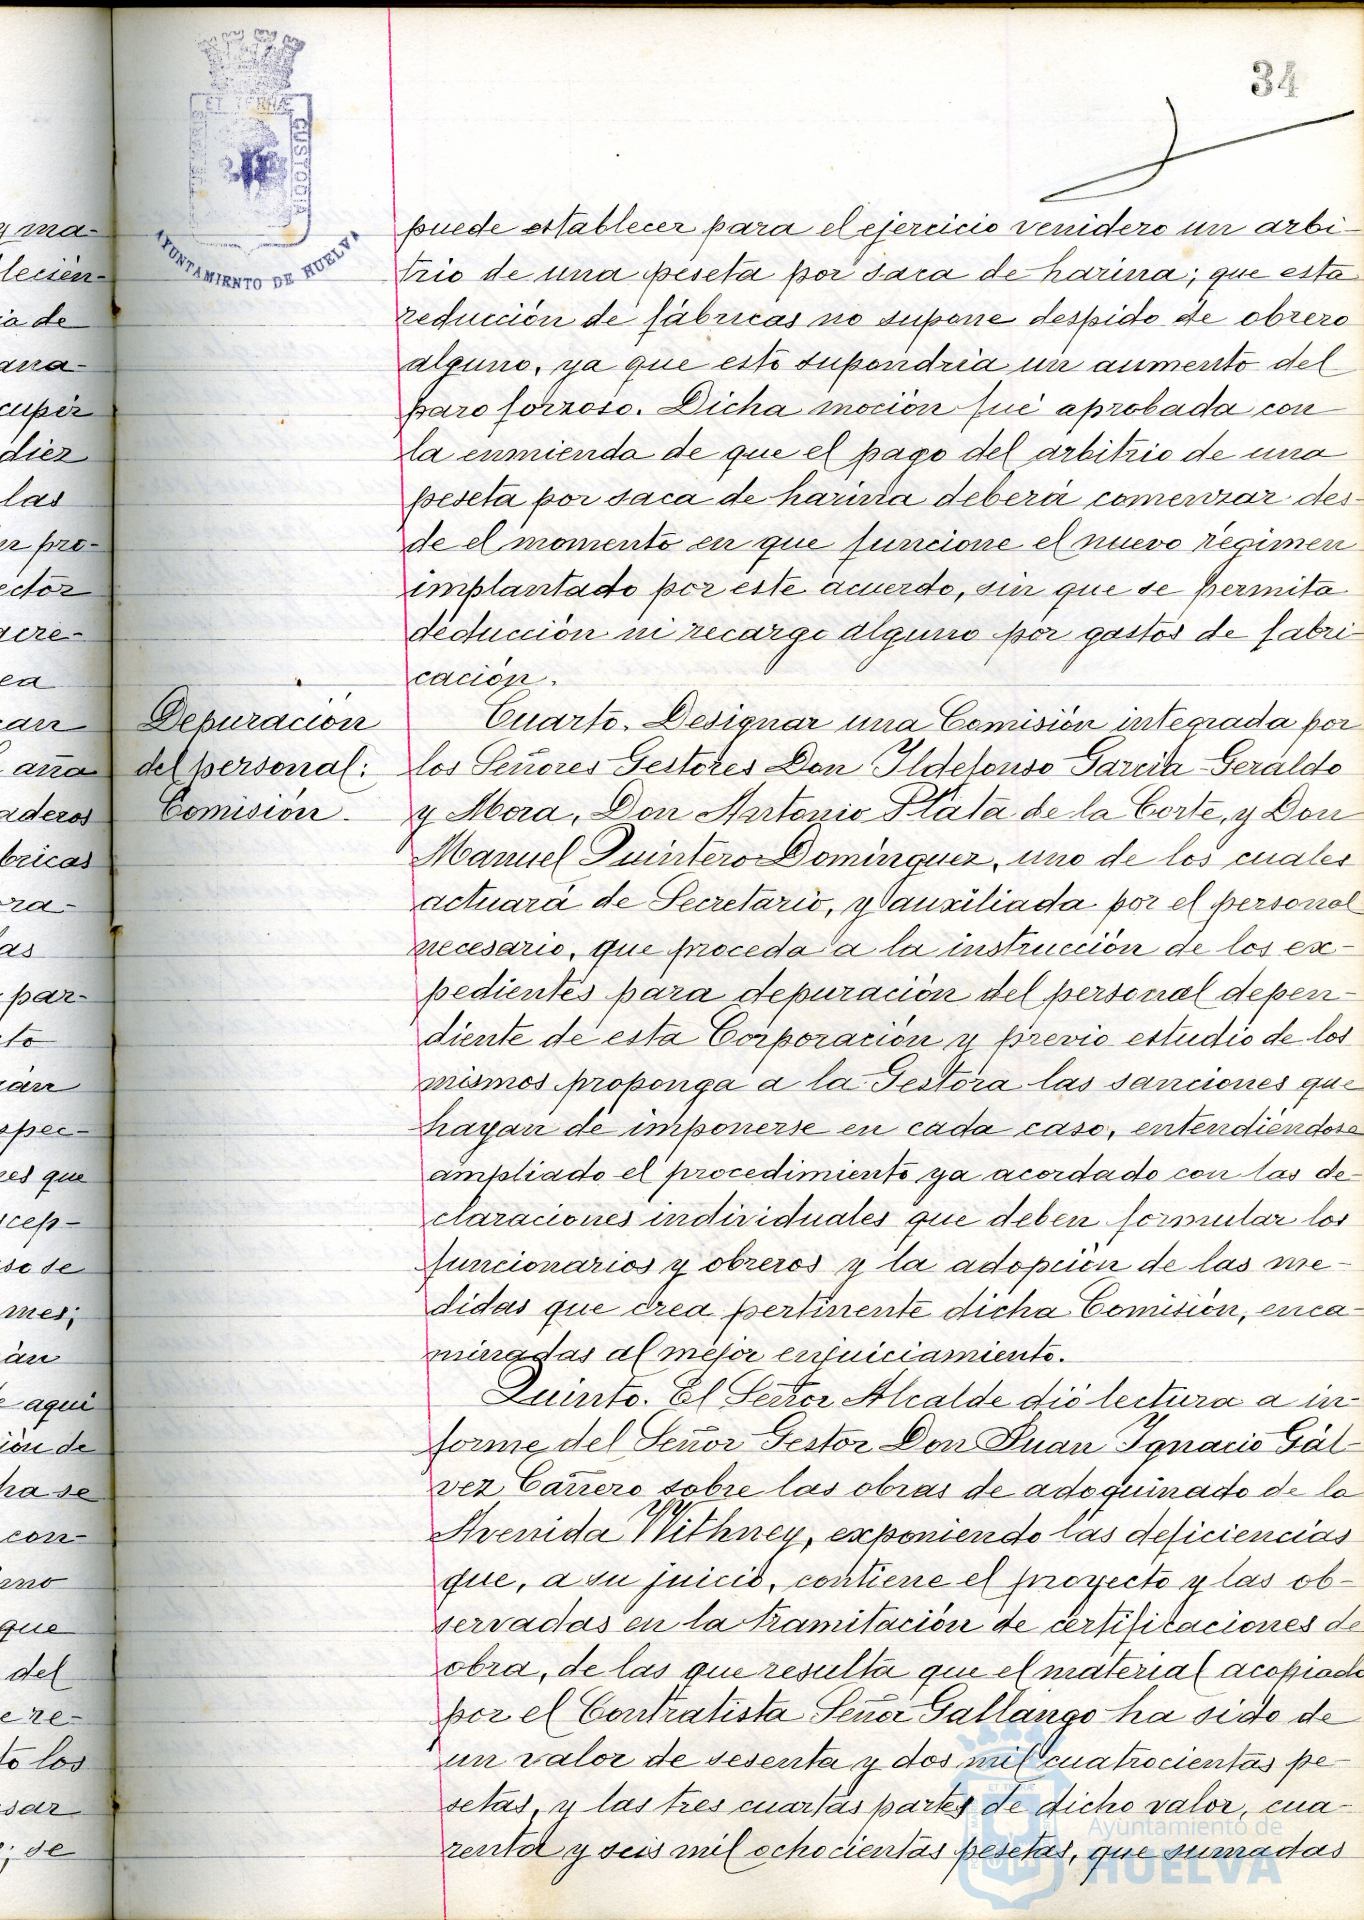 34
ET TERRÆ
CUSTODIA
AYUNTAMIENTO DE HUELVA
puede establecer para el ejercicio venidero un arbi-
trio de una peseta por saca de harina; que esta
reducción de fábricas no supone despido de obrero
alguno, ya que esto supondría un aumento del
paro forzoso. Dicha moción fué aprobada con
la enmienda de que el pago del arbitrio de una
peseta por saca de harina deberá comenzar des-
de el momento en que funcione el nuevo régimen
implantado por este acuerdo, sin que se permita
deducción ni recargo alguno por gastos de fabri-
cación.
Depuración
del personal:
Comisión.
Cuarto. Designar una Comisión integrada por
los Señores Gestores Don Ildefonso García Geraldo
y Mora, Don Antonio Plata de la Corte, y Don
Manuel Quintero Domínguez, uno de los cuales
actuará de Secretario, y auxiliada por el personal
necesario, que proceda a la instrucción de los ex-
pedientes para depuración del personal depen-
diente de esta Corporación y previo estudio de los
mismos proponga a la Gestora las sanciones que
hayan de imponerse en cada caso, entendiéndose
ampliado el procedimiento ya acordado con las de-
claraciones individuales que deben formular los
funcionarios y obreros y la adopción de las me-
didas que crea pertinente dicha Comisión, enca-
minadas al mejor enjuiciamiento.
Quinto. El Señor Alcalde dió lectura a in-
forme del Señor Gestor Don Juan Ignacio Gál-
vez Cañero sobre las obras de adoquinado de la
Avenida Withney, exponiendo las deficiencias
que, a su juicio, contiene el proyecto y las ob-
servadas en la tramitación de certificaciones de
obra, de las que resulta que el material acopiado
por el Contratista Señor Gallango ha sido de
un valor de sesenta y dos mil cuatrocientas pe-
setas, y las tres cuartas partes de dicho valor, cua-
renta y seis mil ochocientas pesetas, que sumadas
Ayuntamiento de
HUELVA
y ma-
lecién-
ia de
ana-
cupér
diez
las
pro-
ector
acre-
ea
can
aña
aderos
bricas
ora-
las
par-
to
rán
spec-
es que
scep-
so se
mes;
án
aquí
ión de
ha se
con-
rno
que
del
e re-
to los
sar
; se